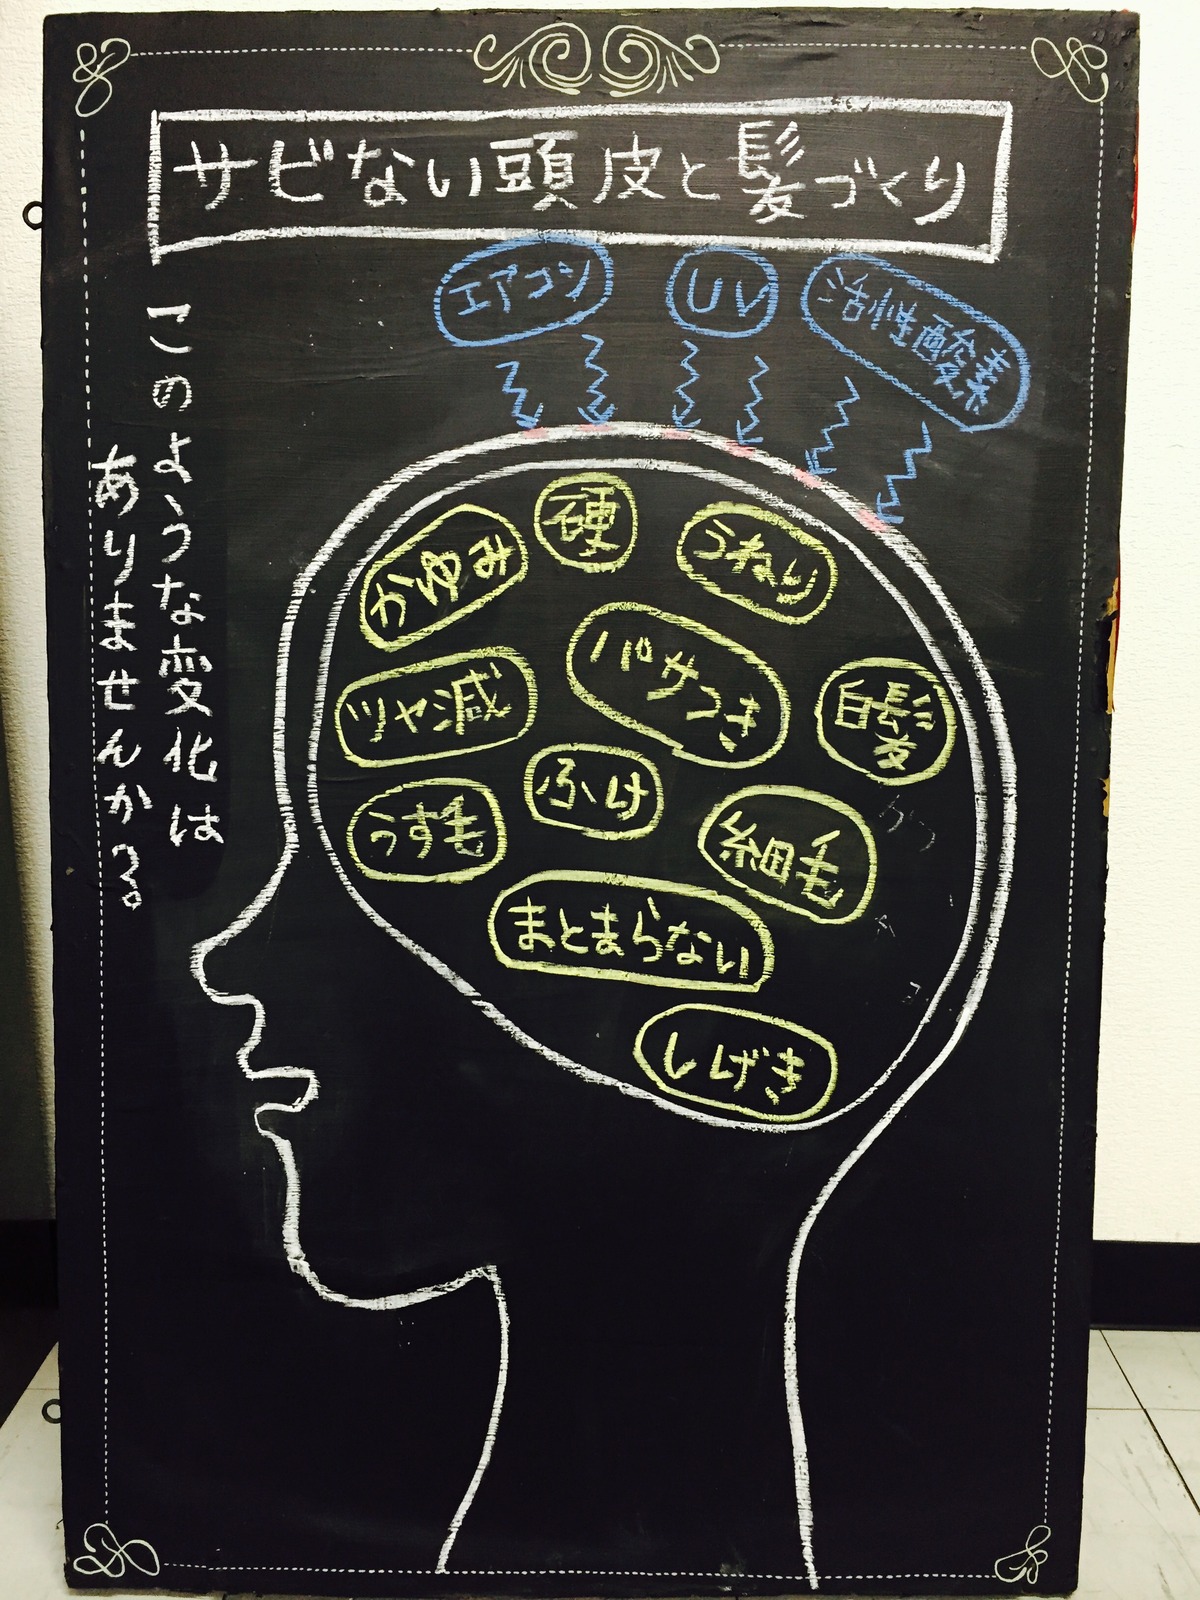 サビない頭皮と髪づくり
エアコン
UV
活性酸素
このような変化は
ありませんか?
かゆみ
硬
うねり
ツヤ減
パサつき
白髪
うす毛
ふけ
細毛
まとまらない
しげき